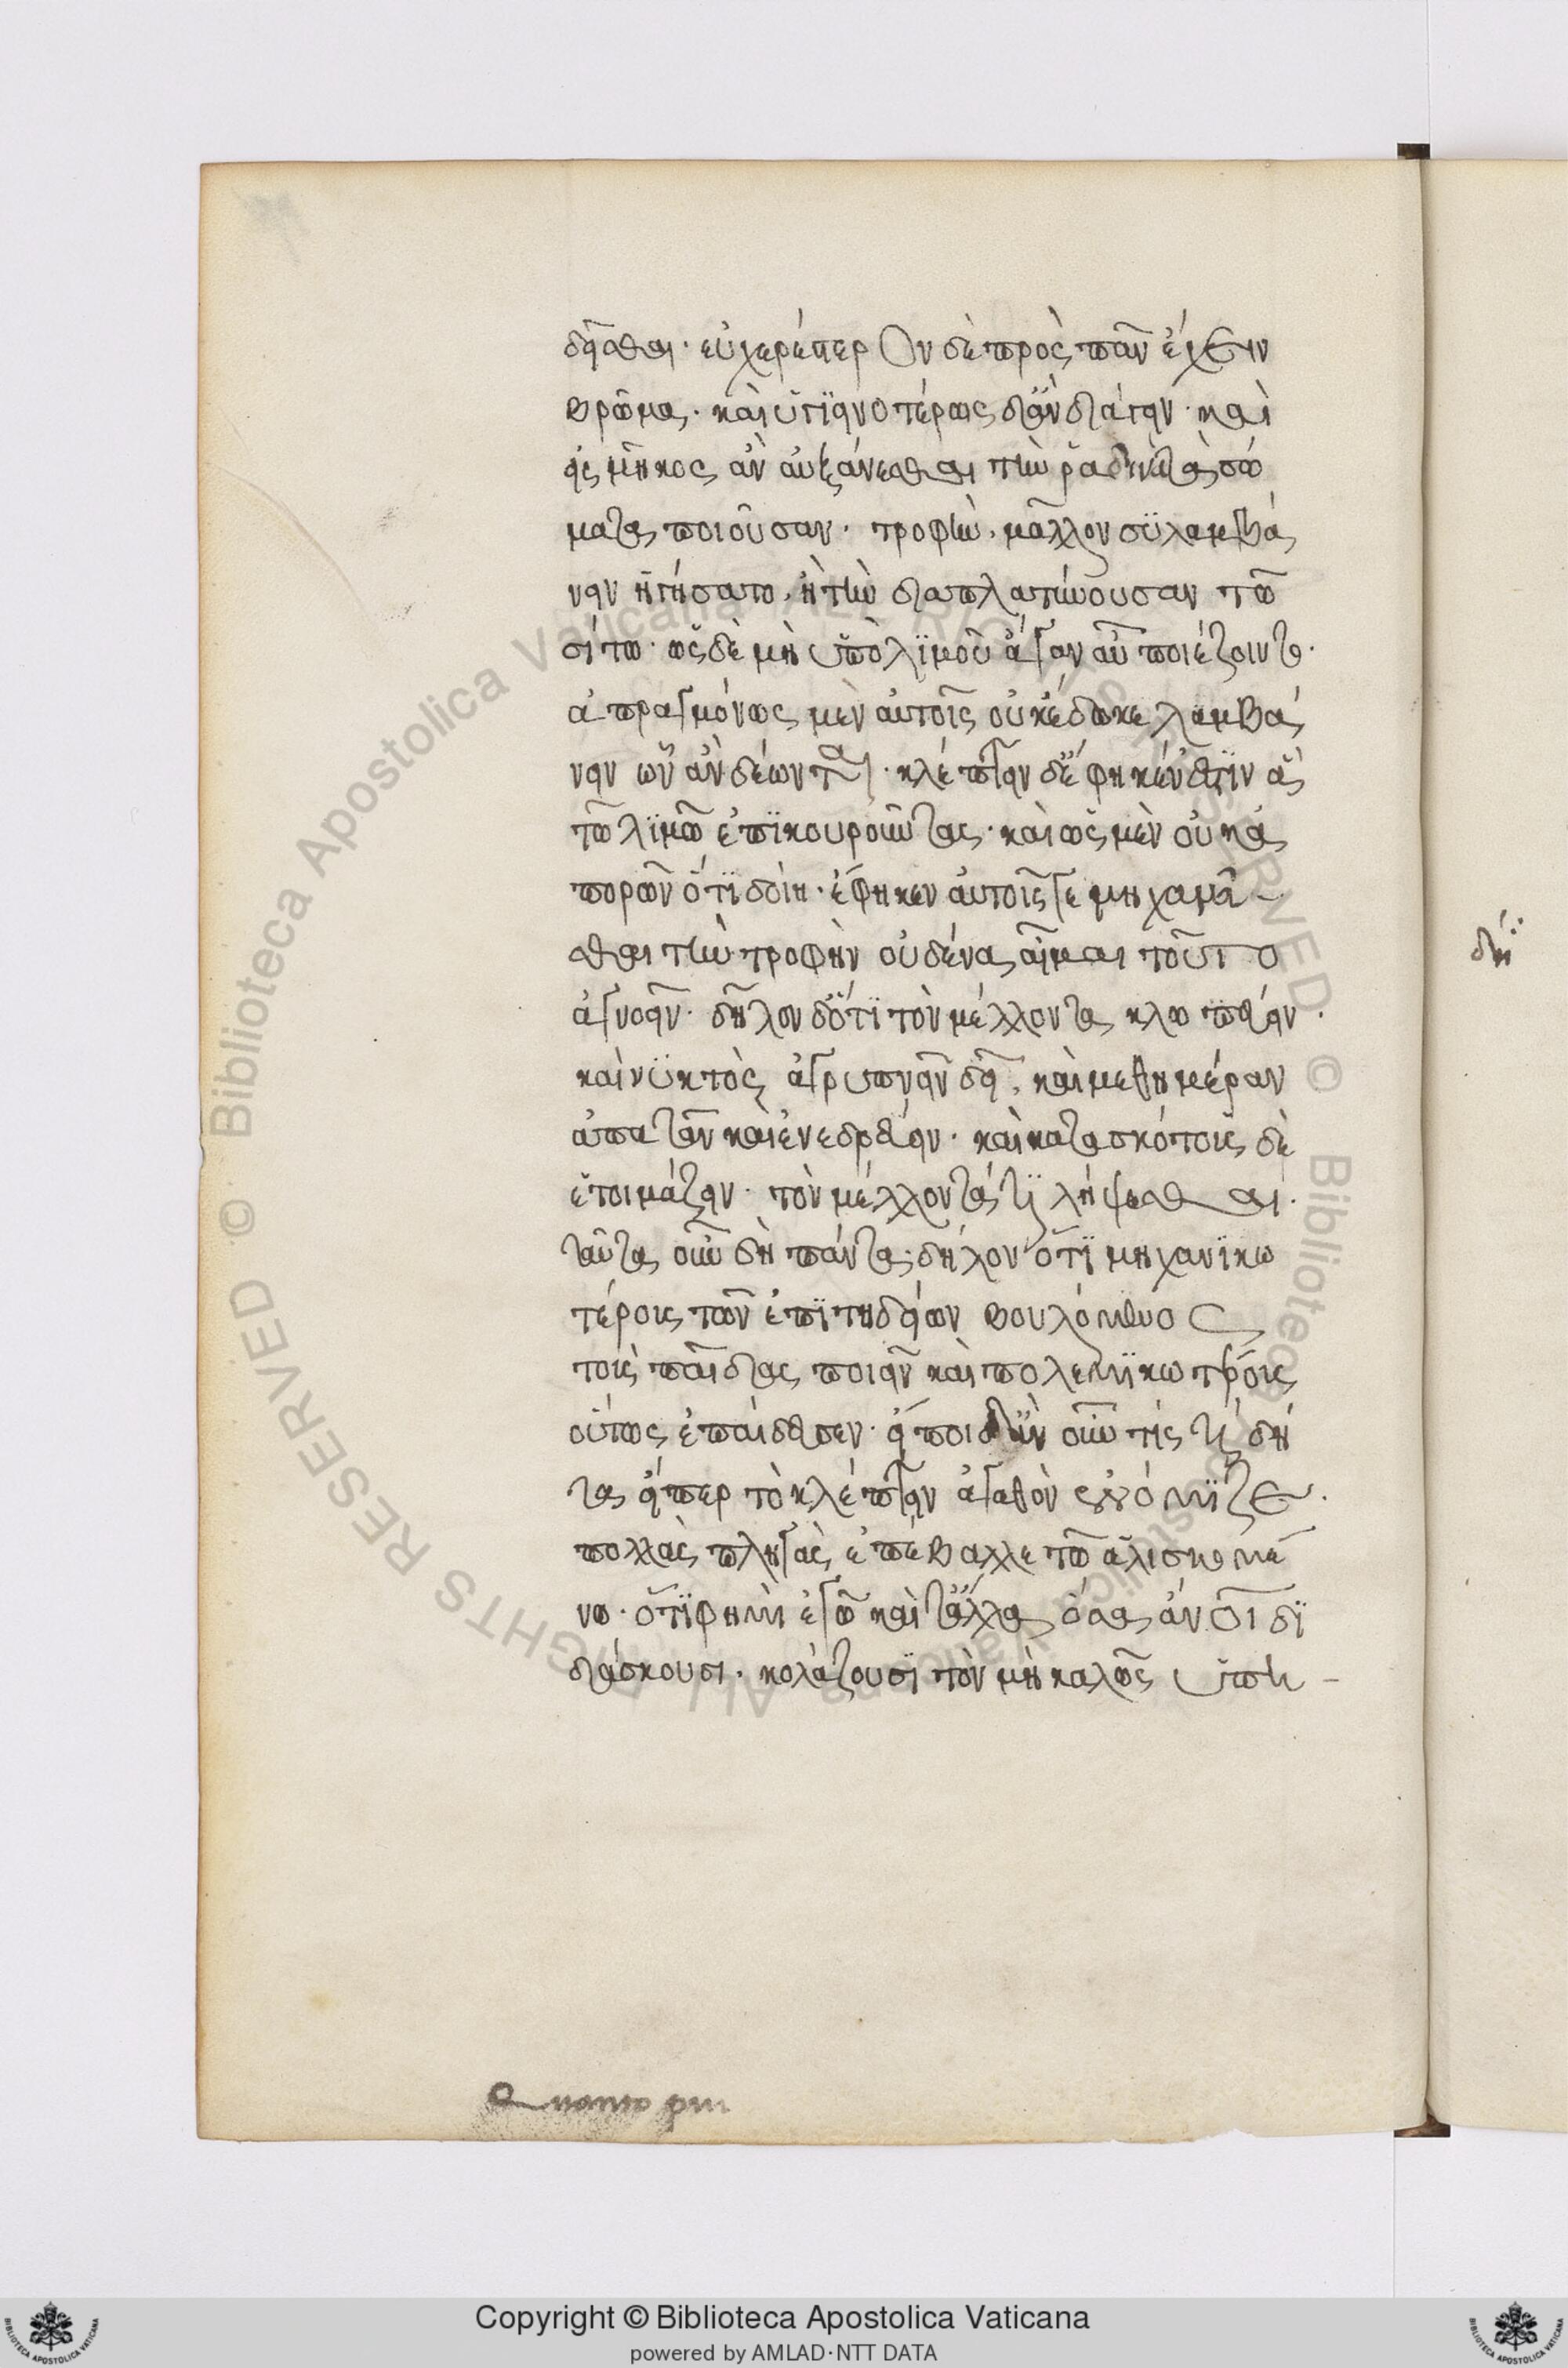 δεῖσθαι· εὐχερέστερον δὲ πρὸς πᾶν ἔχειν
βρῶμα· καὶ ὑγιεινοτέρως δ' ἂν διάγειν· καὶ
εἰς μῆκος ἂν αὐξάνεσθαι τὴν ῥαδινὰ τὰ σώ
ματα ποιοῦσαν· τροφὴν· μᾶλλον συλλαμβά
νειν ἡγήσατο, ἢ τὴν διαπλατύνουσαν τῷ
σίτω· ὡς δὲ μὴ ὑπὸ λιμοῦ ἄγαν αὖ πιέζοιντο·
ἀπραγμόνως μὲν αὐτοῖς οὐκ ἔδωκε λαμβά
νειν ὧν ἂν δέωνται· κλέπτειν δ' ἐφῆκεν ἔστιν ἃ
τῷ λιμῷ ἐπικουροῦντας· καὶ ὡς μὲν οὐκ ἀ
πορῶν ὅτι δοίη· ἐφῆκεν αὐτοῖς γε μηχανᾶ-
σθαι τὴν τροφὴν οὐδένα οἶμαι τοῦτο
ἀγνοεῖν· δῆλον δ' ὅτι τὸν μέλλοντα κλωπεύειν·
καὶ νυκτὸς ἀγρυπνεῖν δεῖ, καὶ μεθημέραν
ἀπατᾶν καὶ ἐνεδρεύειν· καὶ κατασκόπους δὲ
ἑτοιμάζειν· τὸν μέλλοντά τι λήψεσθαι·
ταῦτα οὖν δὴ πάντα· δῆλον ὅτι μηχανικω
τέρους τῶν ἐπιτηδείων βουλόμενος
τοὺς παῖδας ποιεῖν καὶ πολεμικωτέρους
οὕτως ἐπαίδευσεν· εἴποι δ' ἂν οὖν τίς τί δή
τα εἴπερ τὸ κλέπτειν ἀγαθὸν ἐνόμιζε·
πολλὰς πληγὰς ἐπέβαλλε τῷ ἁλισκομέ
νω· ὅτι φημὶ ἐγὼ καὶ τἄλλα ὅσα ἄνοι δι
δάσκουσι· κολάζουσι τὸν μὴ καλῶς ὑπη-
Copyright © Biblioteca Apostolica Vaticana
powered by AMLAD·NTT DATA